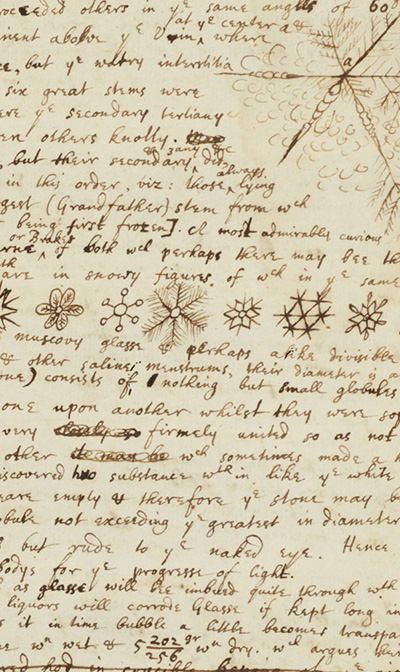 proceeded others in yᵉ same angles of 60
at yᵉ center a &
nent above yᵉ vein, where
ce, but yᵉ watry interstitia
six great stems were
ere yᵉ secondary tertiany
en others knotty.
& 3any &c
, but their secondary did
always
in this order, viz: those lying
gest (Grandfather) stem from wᶜʰ
being first frozen]. A most admirably curious
or Brakes
of both wᶜʰ perhaps there may bee th
are in snowy figures of wᶜʰ in yᵉ same
muscovy glasse & perhaps alike divisible
& other salines menstrums, their diameter is a
one) consists of nothing but small globules
one upon another whilst they were so
very firmly united so as not
other it may be wᶜʰ sometimes made a h
iscovered substance wᵗʰ in like yᵉ white
eare empty & therefore yᵉ stone may b
obule not exceeding yᵉ greatest in diameter
but rude to yᵉ naked eye. Hence
bodys for yᵉ progresse of light.
as glasse will bee imbued quite through wᵗʰ
liquors will corrode Glasse if kept long in
s it in time bubble a little becomes transpa
wⁿ wet & 5 202/256 gr wⁿ dry. wᶜʰ argues ther